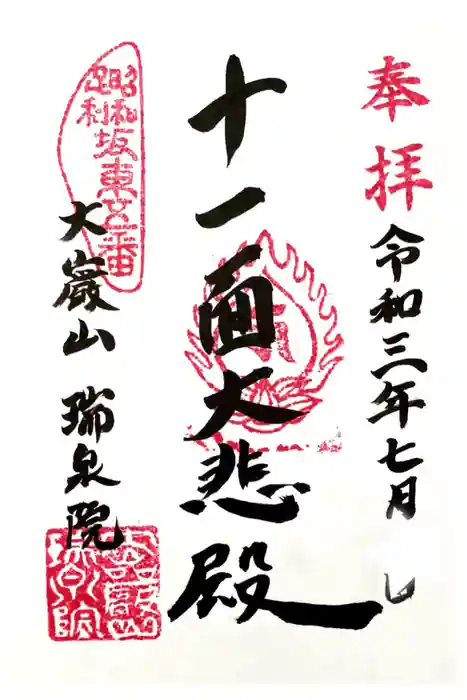 奉拝
令和三年七月
十一面大悲殿
昭和
足利
坂東五番
大巖山 瑞泉院